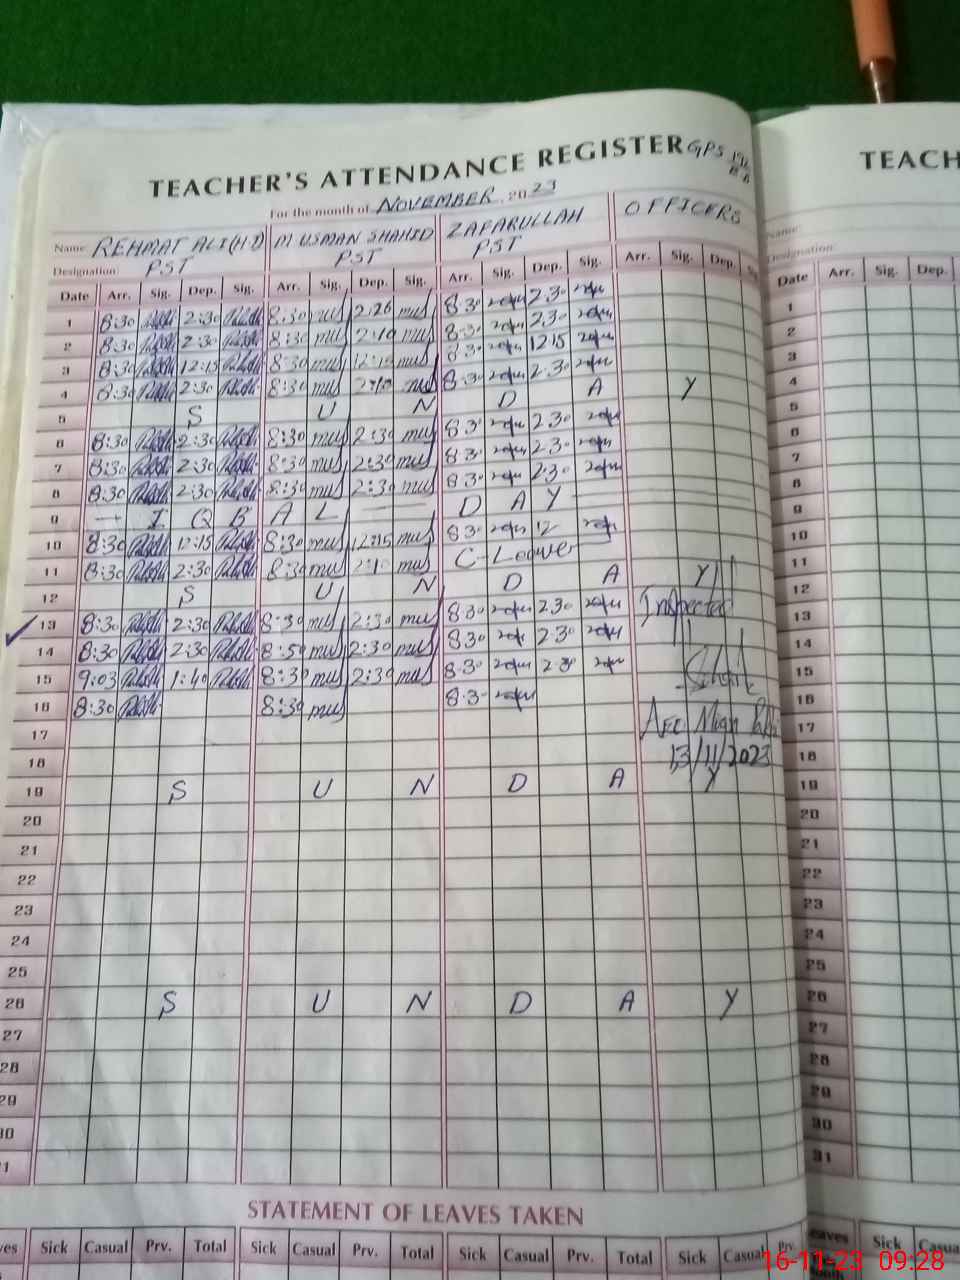 TEACHER'S ATTENDANCE REGISTER GPS
TEACH
For the month of NOVEMBER, 2023
Name REHMAT ALI (H.T) M USMAN SHAHID ZAFARULLAH OFFICERS
Name
Designation PST PST PST
Designation
Date Arr. Sig. Dep. Sig. Arr. Sig. Dep. Sig. Arr. Sig. Dep. Sig. Arr. Sig. Dep. Date Arr. Sig. Dep.
1 8:30 2:30 8:30 mus 2:20 mus 8.30 2.30 1
2 8:30 2:30 8:30 mus 2:10 mus 8.30 2.30 2
3 8:30 12:15 8:30 mus 12:15 mus 8.30 12.15 3
4 8:30 2:30 8:30 mus 2:10 mus 8.30 2.30 4
5 S U N D A Y 5
6 8:30 2:30 8:30 mus 2:30 mus 8.30 2.30 6
7 8:30 2:30 8:30 mus 2:30 mus 8.30 2.30 7
8 8:30 2:30 8:30 mus 2:30 mus 8.30 2.30 8
9 I Q B A L D A Y 9
10 8:30 12:15 8:30 mus 12:15 mus 8.30 12 10
11 8:30 2:30 8:30 mus 2:10 mus C-Leave 11
12 S U N D A Y 12
13 8:30 2:30 8:30 mus 2:30 mus 8.30 2.30 Inspected 13
14 8:30 2:30 8:30 mus 2:30 mus 8.30 2.30 14
15 9:03 1:40 8:30 mus 2:30 mus 8.30 2.30 15
16 8:30 8:30 mus 8.30 16
17 AEO 17
18 13/11/2023 18
19 S U N D A Y 19
20 20
21 21
22 22
23 23
24 24
25 25
26 S U N D A Y 26
27 27
28 28
29 29
30 30
31 31
STATEMENT OF LEAVES TAKEN
Sick Casual Prv. Total Sick Casual Prv. Total Sick Casual Prv. Total Sick Casual Prv. Leaves Sick Casual
16-11-23 09:28